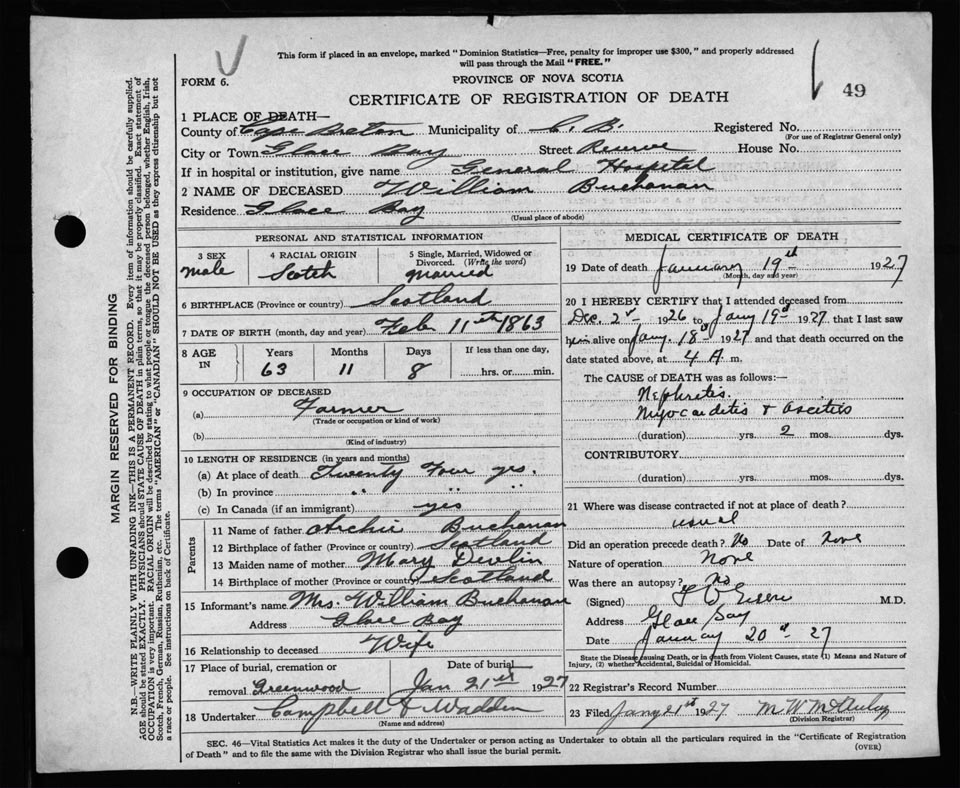 This form if placed in an envelope, marked "Dominion Statistics—Free, penalty for improper use $300," and properly addressed
will pass through the Mail "FREE."
FORM 6.
PROVINCE OF NOVA SCOTIA
49
CERTIFICATE OF REGISTRATION OF DEATH
1 PLACE OF DEATH—
County of Cape Breton Municipality of C. B. Registered No.
(For use of Registrar General only)
City or Town Glace Bay Street Reserve House No.
If in hospital or institution, give name General Hospital
2 NAME OF DECEASED William Buchanan
Residence Glace Bay
(Usual place of abode)
PERSONAL AND STATISTICAL INFORMATION
3 SEX 4 RACIAL ORIGIN 5 Single, Married, Widowed or
Divorced. (Write the word)
Male Scotch Married
6 BIRTHPLACE (Province or country) Scotland
7 DATE OF BIRTH (month, day and year) Feb 11th 1863
8 AGE IN Years Months Days If less than one day,
63 11 8 hrs. or min.
9 OCCUPATION OF DECEASED
(a) Farmer
(Trade or occupation or kind of work)
(b)
(Kind of industry)
10 LENGTH OF RESIDENCE (in years and months)
(a) At place of death Twenty Four yrs.
(b) In province " " "
(c) In Canada (if an immigrant) yes
Parents
11 Name of father Archie Buchanan
12 Birthplace of father (Province or country) Scotland
13 Maiden name of mother Mary Devlin
14 Birthplace of mother (Province or country) Scotland
15 Informant's name Mrs. William Buchanan
Address Glace Bay
16 Relationship to deceased Wife
17 Place of burial, cremation or Date of burial
removal Greenwood Jan 21st 1927
18 Undertaker Campbell & Wadden
(Name and address)
MEDICAL CERTIFICATE OF DEATH
19 Date of death January 19th 1927
(Month, day and year)
20 I HEREBY CERTIFY that I attended deceased from
Dec. 2nd 1926 to Jany 19th 1927 that I last saw
him alive on Jany. 18th 1927 and that death occurred on the
date stated above, at 4 A m.
The CAUSE of DEATH was as follows:—
Nephritis.
Myocarditis & Ascites
(duration) yrs. 2 mos. dys.
CONTRIBUTORY
(duration) yrs. mos. dys.
21 Where was disease contracted if not at place of death?
usual
Did an operation precede death? No Date of None
Nature of operation None
Was there an autopsy? No
(Signed) M.D.
Address Glace Bay
Date January 20th 27
State the Disease causing Death, or in death from Violent Causes, state (1) Means and Nature of
Injury, (2) whether Accidental, Suicidal or Homicidal.
22 Registrar's Record Number
23 Filed Jany 21st 1927
(Division Registrar)
SEC. 46—Vital Statistics Act makes it the duty of the Undertaker or person acting as Undertaker to obtain all the particulars required in the "Certificate of Registration
of Death" and to file the same with the Division Registrar who shall issue the burial permit.
(OVER)
MARGIN RESERVED FOR BINDING
N.B.—WRITE PLAINLY WITH UNFADING INK—THIS IS A PERMANENT RECORD. Every item of information should be carefully supplied.
AGE should be stated EXACTLY. PHYSICIANS should STATE CAUSE OF DEATH in plain terms, so that it may be properly classified. Exact statement of
OCCUPATION is very important. RACIAL ORIGIN will be described by stating to what people or tongue the deceased person belonged, whether English, Irish,
Scotch, French, German, Russian, Ruthenian, etc. The terms "AMERICAN" or "CANADIAN" SHOULD NOT BE USED as they express citizenship but not
a race or people. See instructions on back of Certificate.